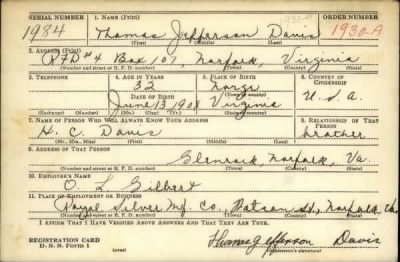 SERIAL NUMBER 1. NAME (Print) ORDER NUMBER
1984 Thomas Jefferson Davis 1930-A
(First) (Middle) (Last)
2. ADDRESS (Print)
RFD #4 Box 107, Norfolk, Virginia
(Number and street or R. F. D. number) (Town) (County) (State)
3. TELEPHONE 4. AGE IN YEARS 5. PLACE OF BIRTH 6. COUNTRY OF CITIZENSHIP
32 Norge
DATE OF BIRTH (Town or county)
June 13, 1908 Virginia U.S.A.
(Exchange) (No.) (Mo.) (Day) (Yr.) (State or country)
7. NAME OF PERSON WHO WILL ALWAYS KNOW YOUR ADDRESS 8. RELATIONSHIP OF THAT PERSON
H. C. Davis brother
(Mr., Mrs., Miss) (First) (Middle) (Last)
9. ADDRESS OF THAT PERSON
Glenrock, Norfolk, Va.
(Number and street or R. F. D. number) (Town) (County) (State)
10. EMPLOYER'S NAME
O. L. Gilbert
11. PLACE OF EMPLOYMENT OR BUSINESS
Royal Silver Mf. Co., St., Norfolk, Va
(Number and street or R. F. D. number) (Town) (County) (State)
I AFFIRM THAT I HAVE VERIFIED ABOVE ANSWERS AND THAT THEY ARE TRUE.
REGISTRATION CARD Thomas Jefferson Davis
D. S. S. Form 1 (over) (Registrant's signature)